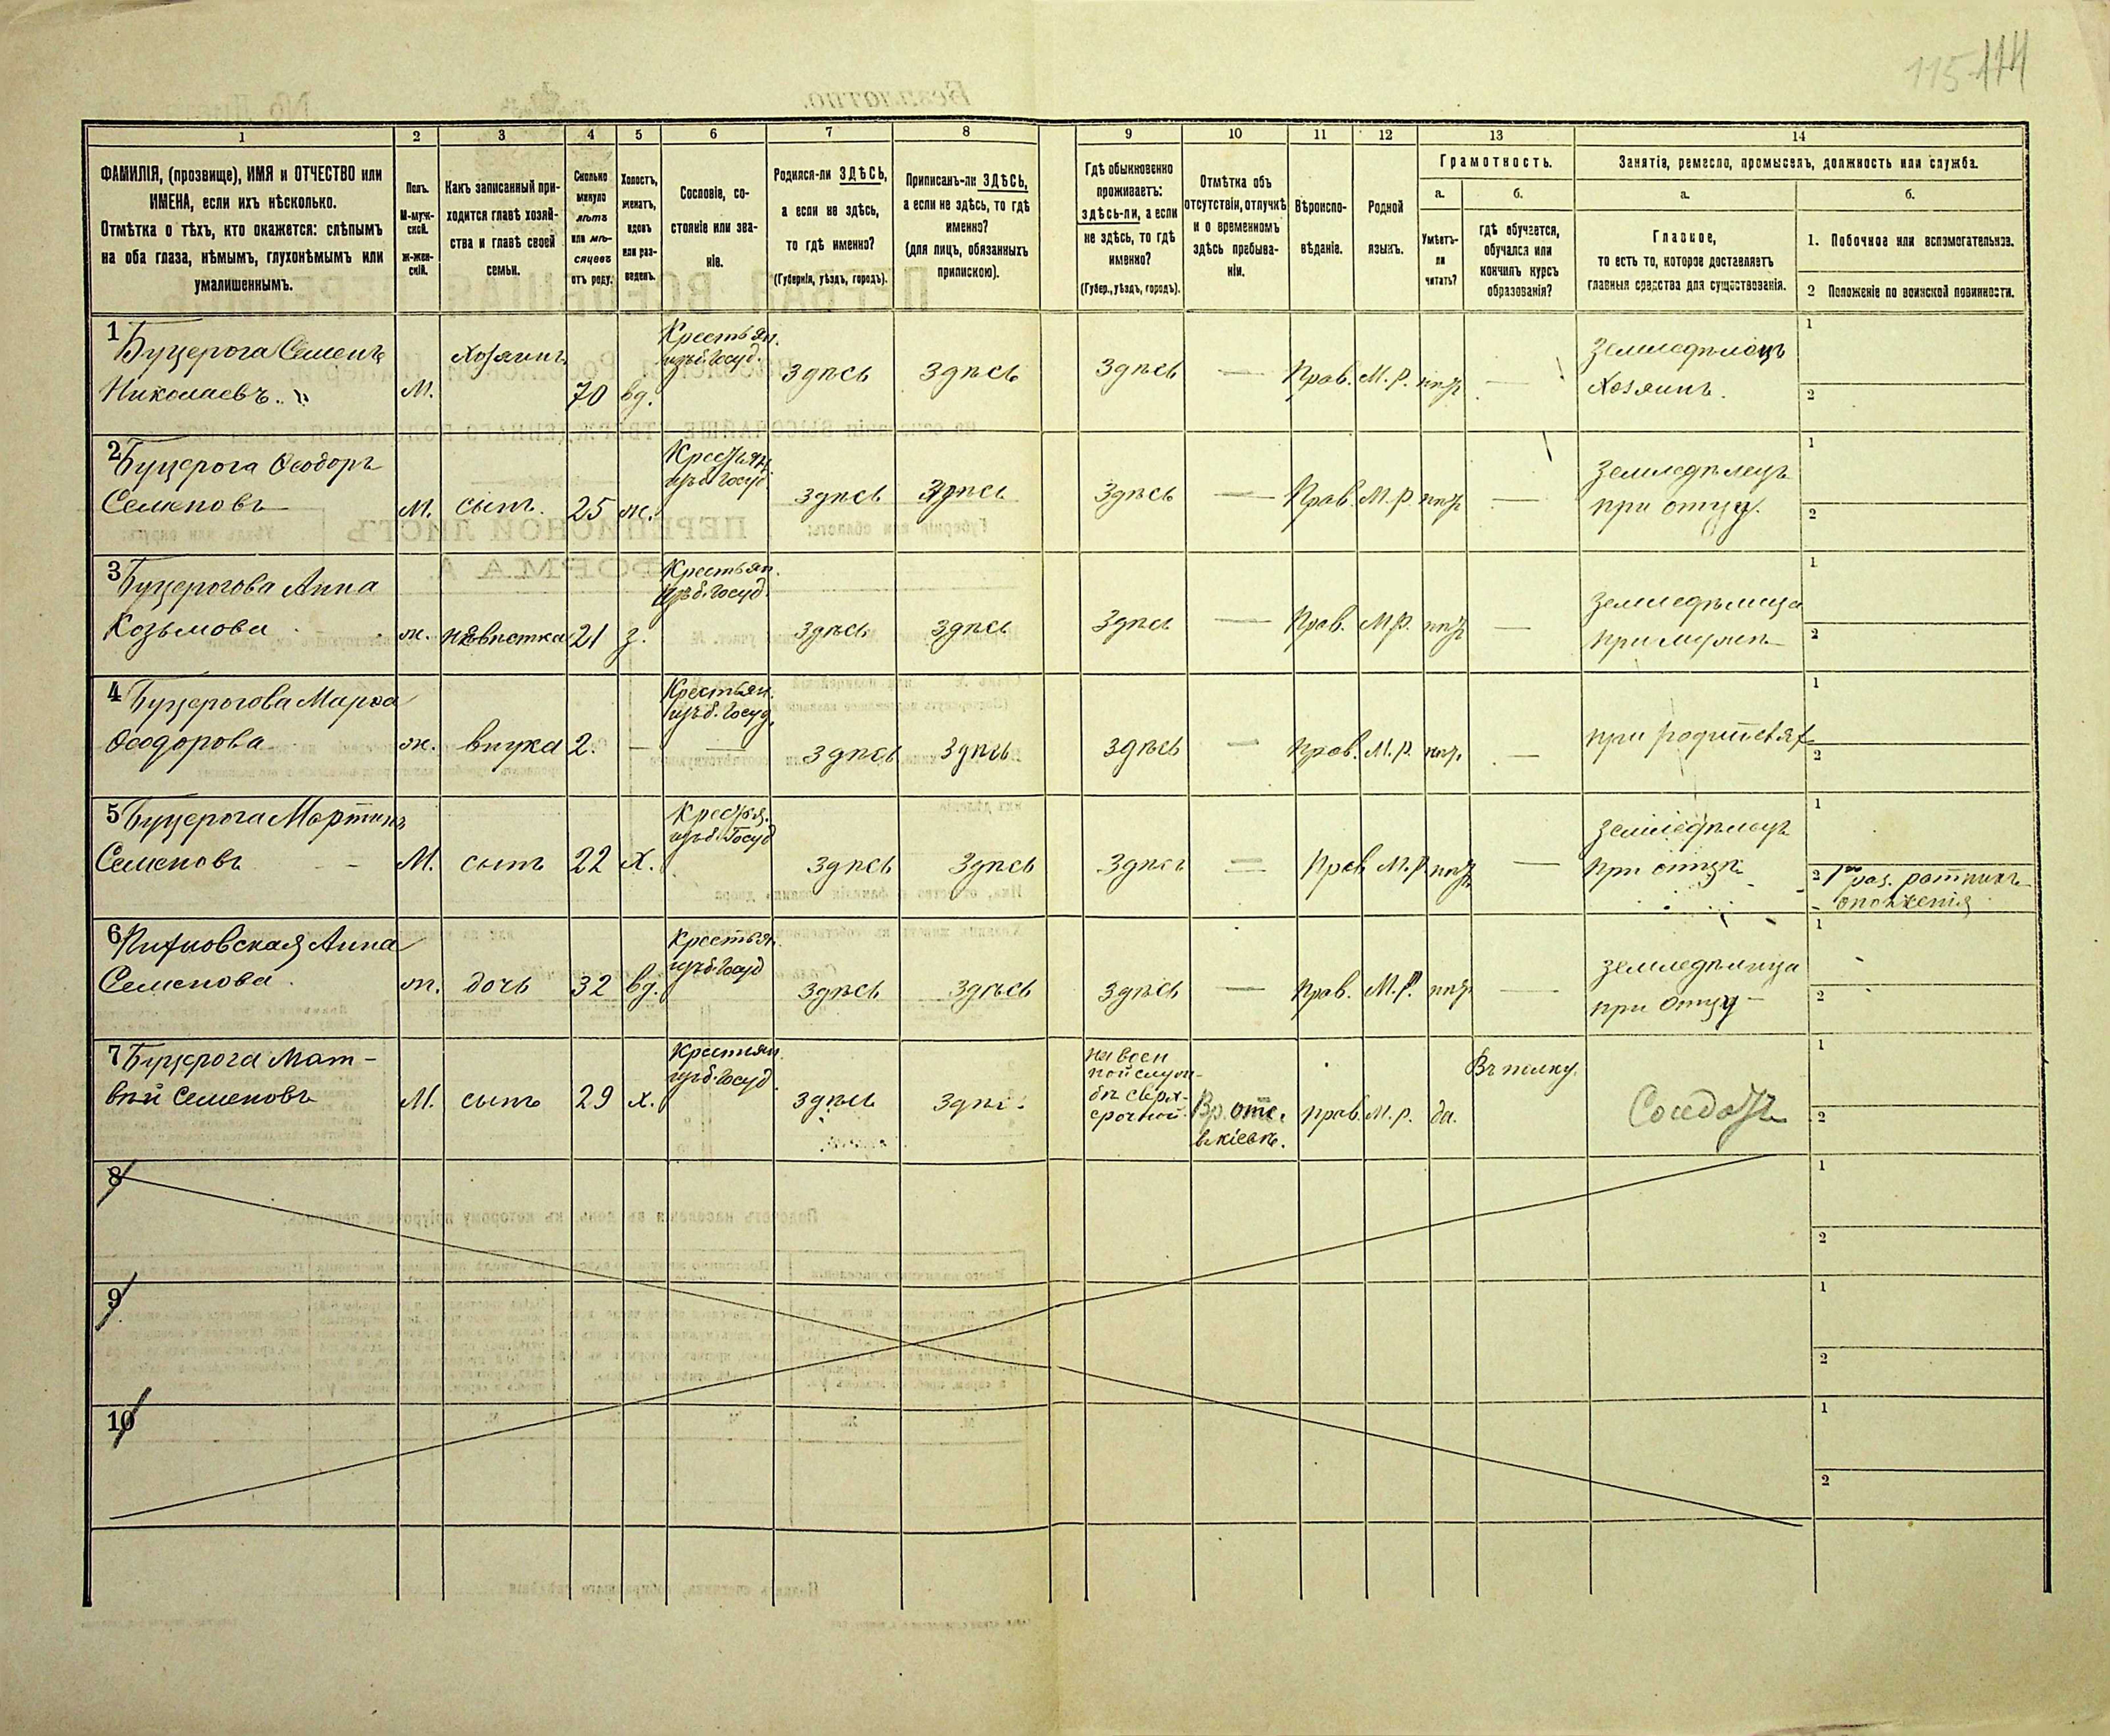 115 114
1
2
3
4
5
6
7
8
9
10
11
12
13
14
ФАМИЛІЯ, (прозвище), ИМЯ и ОТЧЕСТВО или
ИМЕНА, если ихъ нѣсколько.
Отмѣтка о тѣхъ, кто окажется: слѣпымъ
на оба глаза, нѣмымъ, глухонѣмымъ или
умалишеннымъ.
Полъ.
М-муж-
ской.
ж-жен-
скій.
Какъ записанный при-
ходится главѣ хозяй-
ства и главѣ своей
семьи.
Сколько
минуло
лѣтъ
или мѣ-
сяцевъ
отъ роду.
Холостъ,
женатъ,
вдовъ
или раз-
веденъ.
Сословіе, со-
стояніе или зва-
ніе.
Родился-ли ЗДѢСЬ,
а если не здѣсь,
то гдѣ именно?
(Губернія, уѣздъ, городъ).
Приписанъ-ли ЗДѢСЬ,
а если не здѣсь, то гдѣ
именно?
(для лицъ, обязанныхъ
припискою).
Гдѣ обыкновенно
проживаетъ:
здѣсь-ли, а если
не здѣсь, то гдѣ
именно?
(Губер., уѣздъ, городъ).
Отмѣтка объ
отсутствіи, отлучкѣ
и о временномъ
здѣсь пребыва-
ніи.
Вѣроиспо-
вѣданіе.
Родной
языкъ.
Грамотность.
а.
б.
Умѣетъ-
ли
читать?
гдѣ обучается,
обучался или
кончилъ курсъ
образованія?
Занятіе, ремесло, промыселъ, должность или служба.
а.
б.
Главное,
то есть то, которое доставляетъ
главныя средства для существованія.
1. Побочное или вспомогательное.
2 Положеніе по воинской повинности.
1 Буцерога Семенъ
Николаевъ.
М.
Хозяинъ
70
вд.
Крестьян.
изъ б. Госуд.
Здѣсь
Здѣсь
Здѣсь
—
Прав.
М. р.
нѣтъ
—
Земледѣлецъ
Хозяинъ.
1
2
2 Буцерога Ѳеодоръ
Семеновъ
М.
сынъ.
25
ж.
Крестьян.
изъ б. Госуд.
Здѣсь
Здѣсь
Здѣсь
—
Прав.
М. р.
нѣтъ
—
Земледѣлецъ
при отцу.
1
2
3 Буцерогова Анна
Козьмова
ж.
невѣстка
21
з.
Крестьян.
изъ б. Госуд.
Здѣсь
Здѣсь
Здѣсь
—
Прав.
М. р.
нѣтъ
—
Земледѣлица
при мужѣ
1
2
4 Буцерогова Марѳа
Ѳеодорова
ж.
внука
2.
—
Крестьян.
изъ б. Госуд.
—
Здѣсь
Здѣсь
Здѣсь
—
Прав.
М. р.
нѣтъ.
—
при родителяхъ
1
2
5 Буцерога Мартинъ
Семеновъ
М.
сынъ
22
х.
Крестья.
изъ б. Госуд
Здѣсь
Здѣсь
Здѣсь
—
Прав
М. р.
нѣтъ
—
Земледѣлецъ
при отцѣ
1
2 1го раз. ратникъ
ополченія
6
Анна
Семенова.
ж.
дочь
32
вд.
Крестьян.
изъ б. Госуд
Здѣсь
Здѣсь
Здѣсь
—
Прав.
М. р.
нѣтъ
—
Земледѣлица
при отцу
1
2
7 Буцерога Мат-
вѣй Семеновъ
М.
сынъ
29
х.
Крестьян.
изъ б. Госуд
Здѣсь
Здѣсь
на воен
ной служ-
бѣ сверх-
срочной
Вр. отс.
в Кіевѣ.
прав.
М. р.
да.
Въ полку.
Солдатъ
1
2
8
1
2
9
1
2
10
1
2